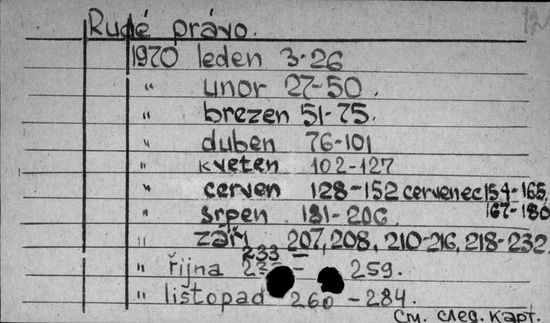 12
Rudé právo.
1970 leden 3-26
" unor 27-50.
" brezen 51-75.
" duben 76-101
" kveten 102-127
" cerven 128-152 cervenec 154-165,
167-180
" srpen 181-206.
" září 207, 208, 210-216, 218-232,
233 –
" řijna 259.
" listopad 260-284.
См. след. карт.